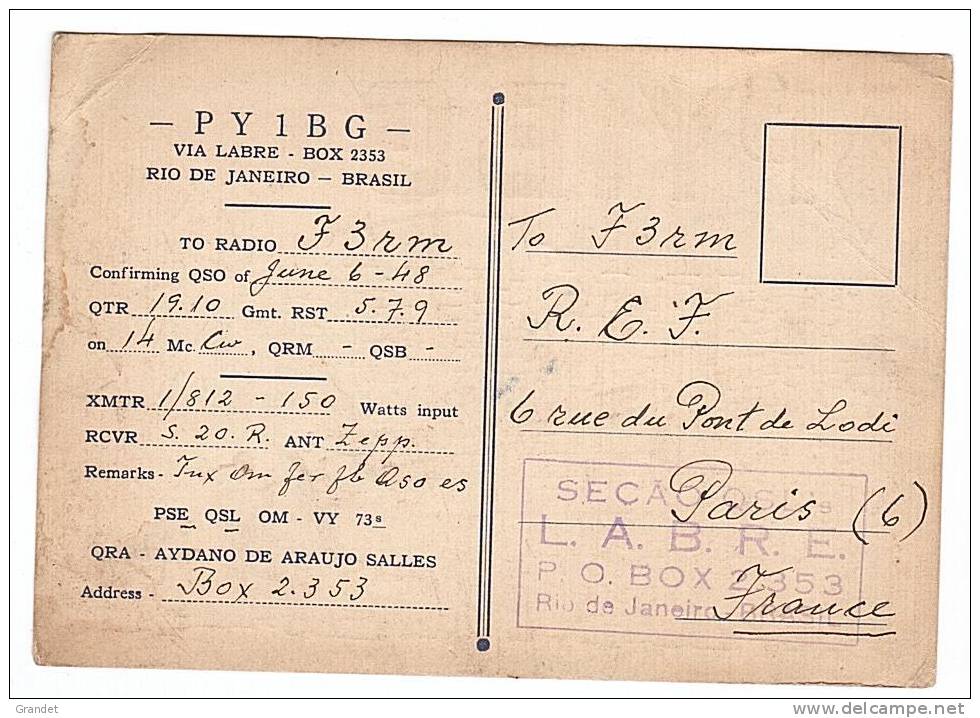 — P Y 1 B G —
VIA LABRE - BOX 2353
RIO DE JANEIRO — BRASIL
TO RADIO F3rm
Confirming QSO of June 6-48
QTR 19.10 Gmt. RST 5.7.9
on 14 Mc. Cw, QRM - QSB -
XMTR 1/812 - 150 Watts input
RCVR S. 20. R. ANT Zepp.
Remarks - Tnx Om fer fb Qso es
PSE QSL OM - VY 73s
QRA - AYDANO DE ARAUJO SALLES
Address - Box 2.353
To F3rm
R. E. F.
6 rue du Pont de Lodi
Paris (6)
France
SEÇÃO
L. A. B. R. E.
P. O. BOX 2353
Rio de Janeiro
Grandet
www.delcampe.net